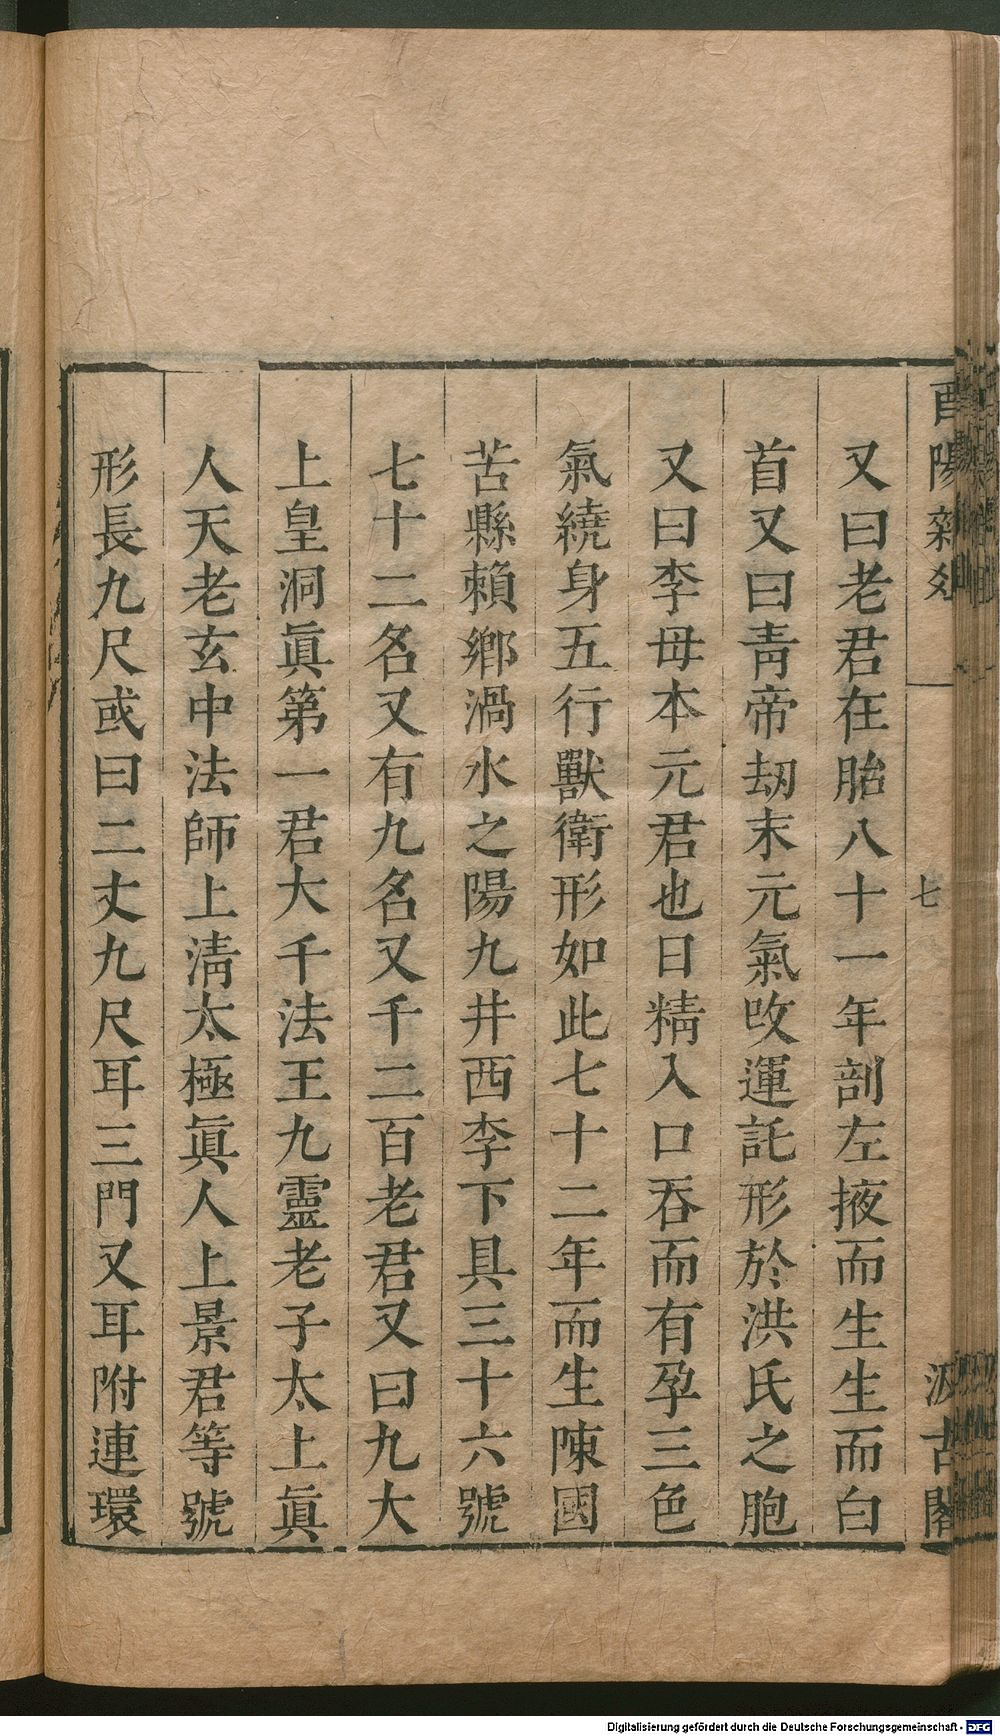 酉陽雜俎
七
汲古閣
又曰老君在胎八十一年剖左掖而生生而白
首又曰靑帝刼末元氣攺運託形於洪氏之胞
又曰李母本元君也日精入口吞而有孕三色
氣繞身五行獸衛形如此七十二年而生陳國
苦縣賴鄉渦水之陽九井西李下具三十六號
七十二名又有九名又千二百老君又曰九大
上皇洞眞第一君大千法王九靈老子太上眞
人天老玄中法師上淸太極眞人上景君等號
形長九尺或曰二丈九尺耳三門又耳附連環
Digitalisierung gefördert durch die Deutsche Forschungsgemeinschaft - DFG